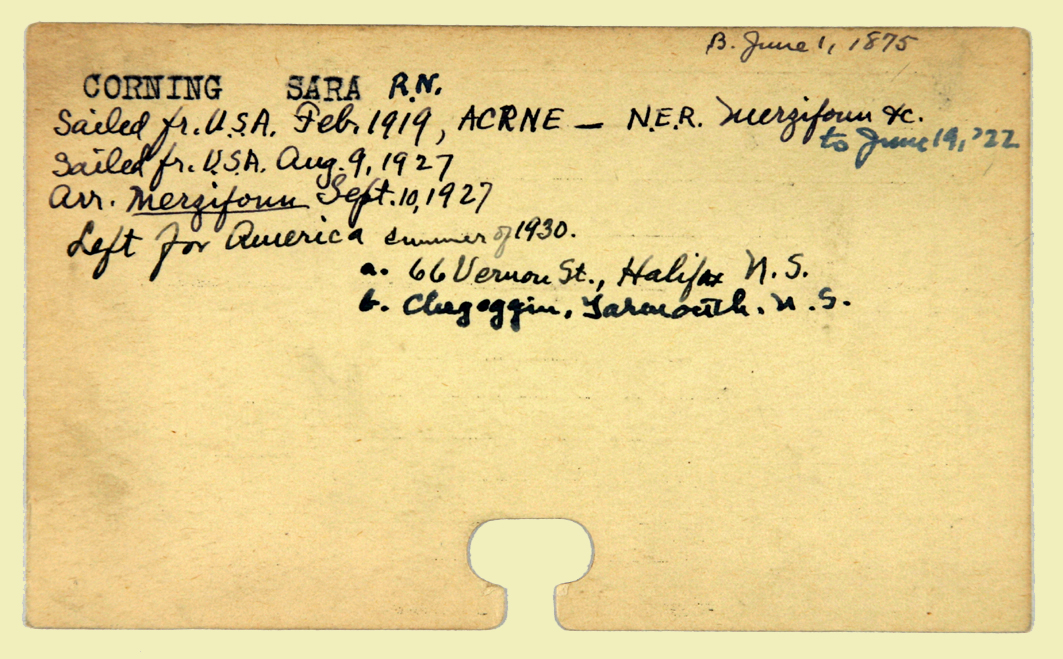 B. June 1, 1875
CORNING SARA R.N.
Sailed fr. U.S.A. Feb. 1919, ACRNE — N.E.R. Merzifoun &c.
to June 19, '22
Sailed fr. U.S.A. Aug. 9, 1927
Arr. Merzifoun Sept. 10, 1927
Left for America summer of 1930.
a. 66 Vernon St., Halifax N.S.
b. Chegoggin, Yarmouth. N.S.